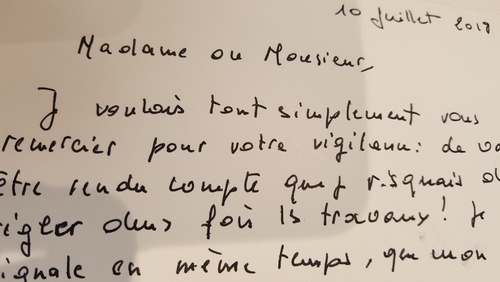 10 Juillet 2018
Madame ou Monsieur,
J voulais tout simplement vous
remercier pour votre vigilance: de vo
être rendu compte que j risquais d
régler deux fois ls travaux! Je
signale en même temps, que mon